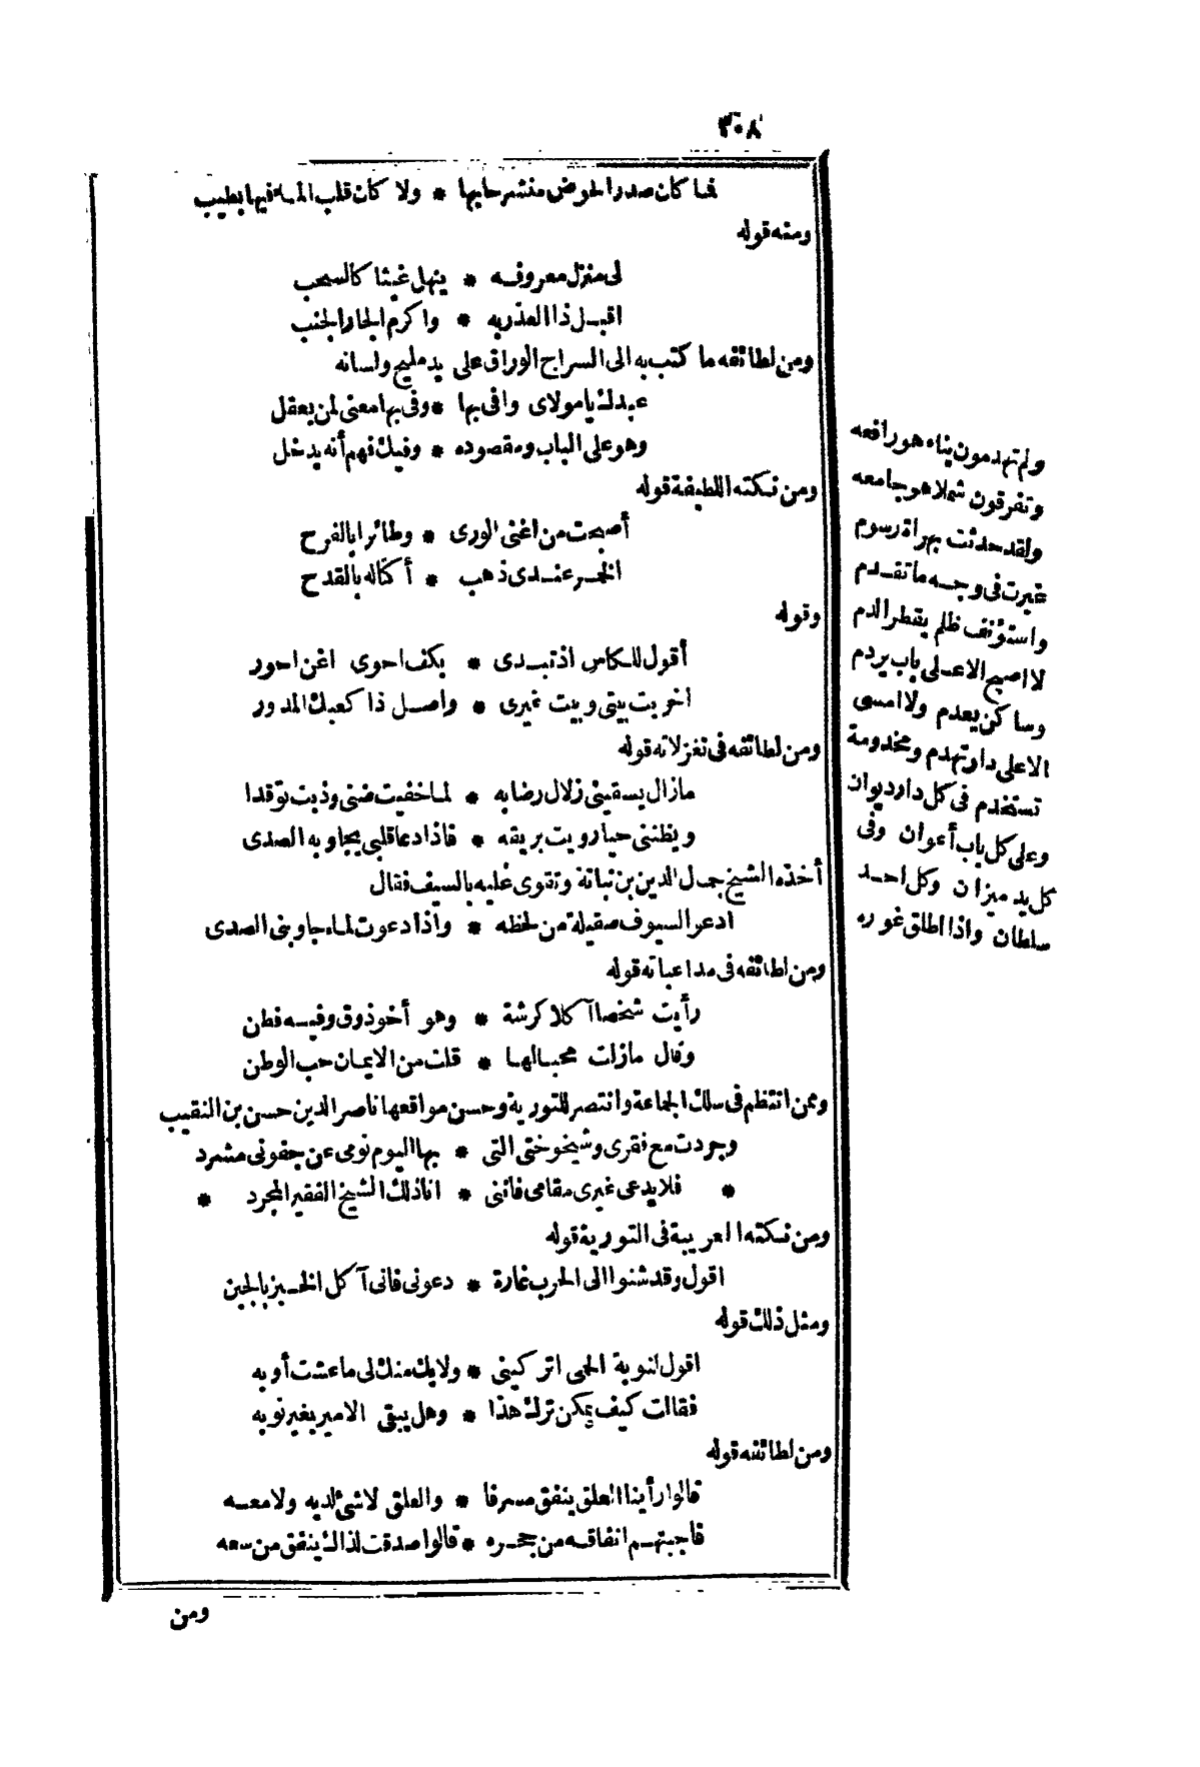 ٣٠٨
فما كان صدر الحوض منشرحا بها * ولا كان قلب الماء فيها بطيب
ومنه قوله
لى منزل معروفه * ينهل غيثا كالسحب
اقبل ذا العذر به * واكرم الجار الجنب
ومن لطائفه ما كتب به الى السراج الوراق على يد مليح ولسانه
عبدك يا مولاى وافى بها * وفى بها معنى لمن يعقل
وهو على الباب ومقصوده * وفيك فهم أنه يدخل
ومن نكته اللطيفة قوله
أصبحت من اغنى الورى * وطائرا بالفرح
الخمر عندى ذهب * أكتاله بالقدح
وقوله
أقول للكاس اذ تبدى * بكف احوى اغن احور
اخربت بيتى وبيت غيرى * واصل ذا كعبك المدور
ومن لطائفه فى تغزلاته قوله
مازال يسقينى زلال رضابه * لما خفيت ضنى وذبت توقدا
ويظننى حيا رويت بريقه * فاذا دعا قلبى يجاوبه الصدى
أخذه الشيخ جمال الدين بن نباتة وتقوى عليه بالسيف فقال
ادعو السيوف صقيلة من لحظه * واذا دعوت لماء جاوبنى الصدى
ومن لطائفه فى مداعباته قوله
رأيت شخصا آكلا كرشة * وهو أخو ذوق وفيه فطن
وقال مازلت محبا لها * قلت من الايمان حب الوطن
وممن انتظم فى سلك الجماعة وانتصر للتورية وحسن مواقعها ناصر الدين حسن بن النقيب
وجردت مع فقرى وشيخوختى التى * بها اليوم نومى عن جفونى مشرد
* فلا يدعى غيرى مقامى فاننى * انا ذلك الشيخ الفقير المجرد *
ومن نكته الغريبة فى التورية قوله
اقول وقد شنوا الى الحرب غارة * دعونى فانى آكل الخبز بالجبن
ومثل ذلك قوله
اقول لنوبة الحمى اتركينى * ولا يك منك لى ما عشت أوبه
فقالت كيف يمكن ترك هذا * وهل يبقى الامير بغير نوبه
ومن لطائفه قوله
قالوا رأينا العلق ينفق مسرفا * والعلق لاشئ لديه ولا معه
فاجبتهم انفاقه من جحره * قالوا صدقت لذاك ينفق من سعه
ومن
ولم تهدمون بناء هو رافعه
وتفرقون شملا هو جامعه
ولقد حدثت بهراة رسوم
غيرت فى وجه ما تقدم
واستؤنف ظلم يقطر الدم
لا اصبح الا على باب يردم
وساكن يعدم ولا امسى
الا على دار تهدم ومخدومة
تستخدم فى كل دار ديوان
وعلى كل باب أعوان وفى
كل يد ميزان وكل احد
سلطان واذا اطلق غوره